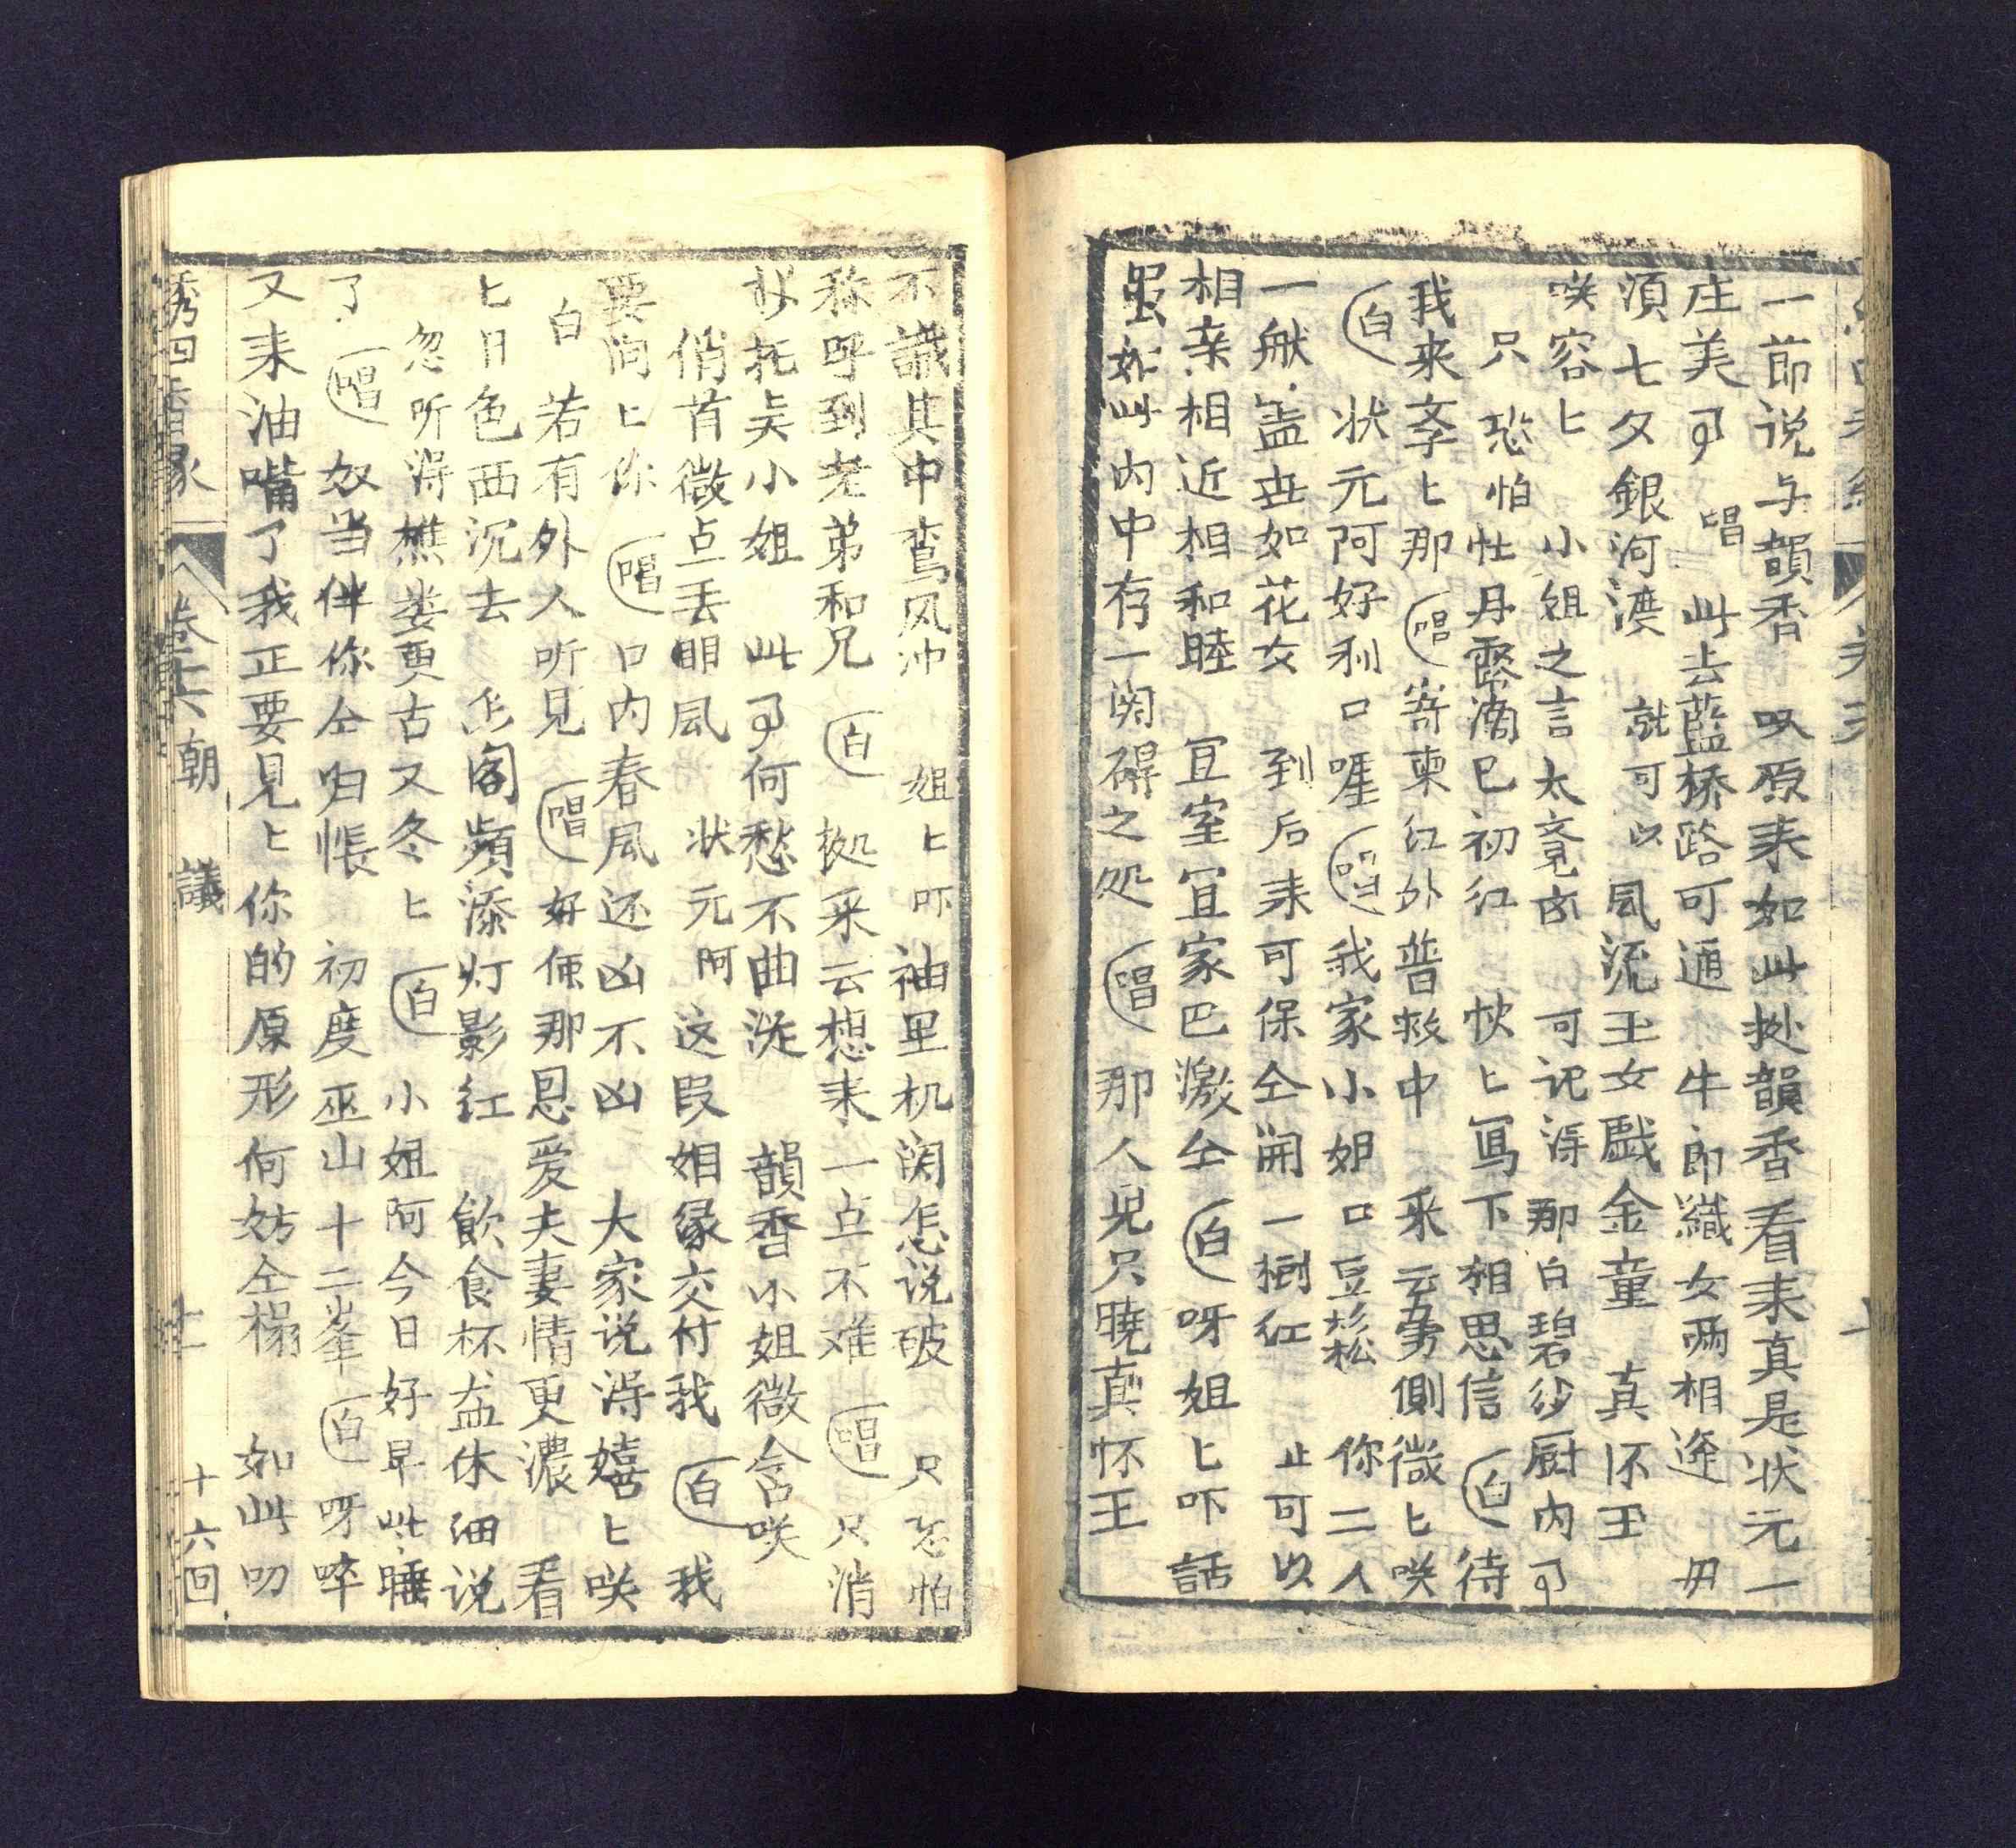 一節说与韻香 叹原耒如此扷韻香看耒真是状元一
庄美 唱 此去藍桥路可通 牛郎織女兩相逢 毋
湏七夕銀河渡 就可以 風流玉女戯金童 真怀王
咲容匕 小姐之言太竟 可记淂 那白碧纱厨内
只恐怕牡丹露滴已初红 快匕冩下相思信 白 待
我来 匕那 唱 寄柬红外普救中 采云 側微匕咲
白 状元阿好利口 唱 我家小姐口豆松 你二人
一般盖世如花女 到后耒可保仝開一樹红 止可以
相亲相近相和睦 宜室宜家巴激仝 白 呀姐匕吓 話
虽如此内中存一関碍之处 唱 那人兒只曉真怀王
不識其中鸾风冲 姐匕吓 袖里机関怎说破 只怎怕
称呼到老弟和兄 白 采云想耒一点不难 唱 只消
妙托吴小姐 此 何愁不曲 韻香小姐微含咲
俏首微点丢眀風 状元阿 这叚姻缘交付我 白 我
要问匕你 唱 口内春風还凶不凶 大家说淂嬉匕咲
白 若有外人听見 唱 好 那恩爱夫妻情更濃 看
匕日色西沉去 閣頻添灯影红 飲食杯盆休细说
忽听淂樵娄更古又冬匕 白 小姐阿今日好早些睡
了 唱 奴当伴你仝归帳 初度巫山十二峯 白 呀啐
又耒油嘴了我正要見匕你的原形何妨仝榻 如此叨
绣四香缘 卷十六 朝 議 十六回